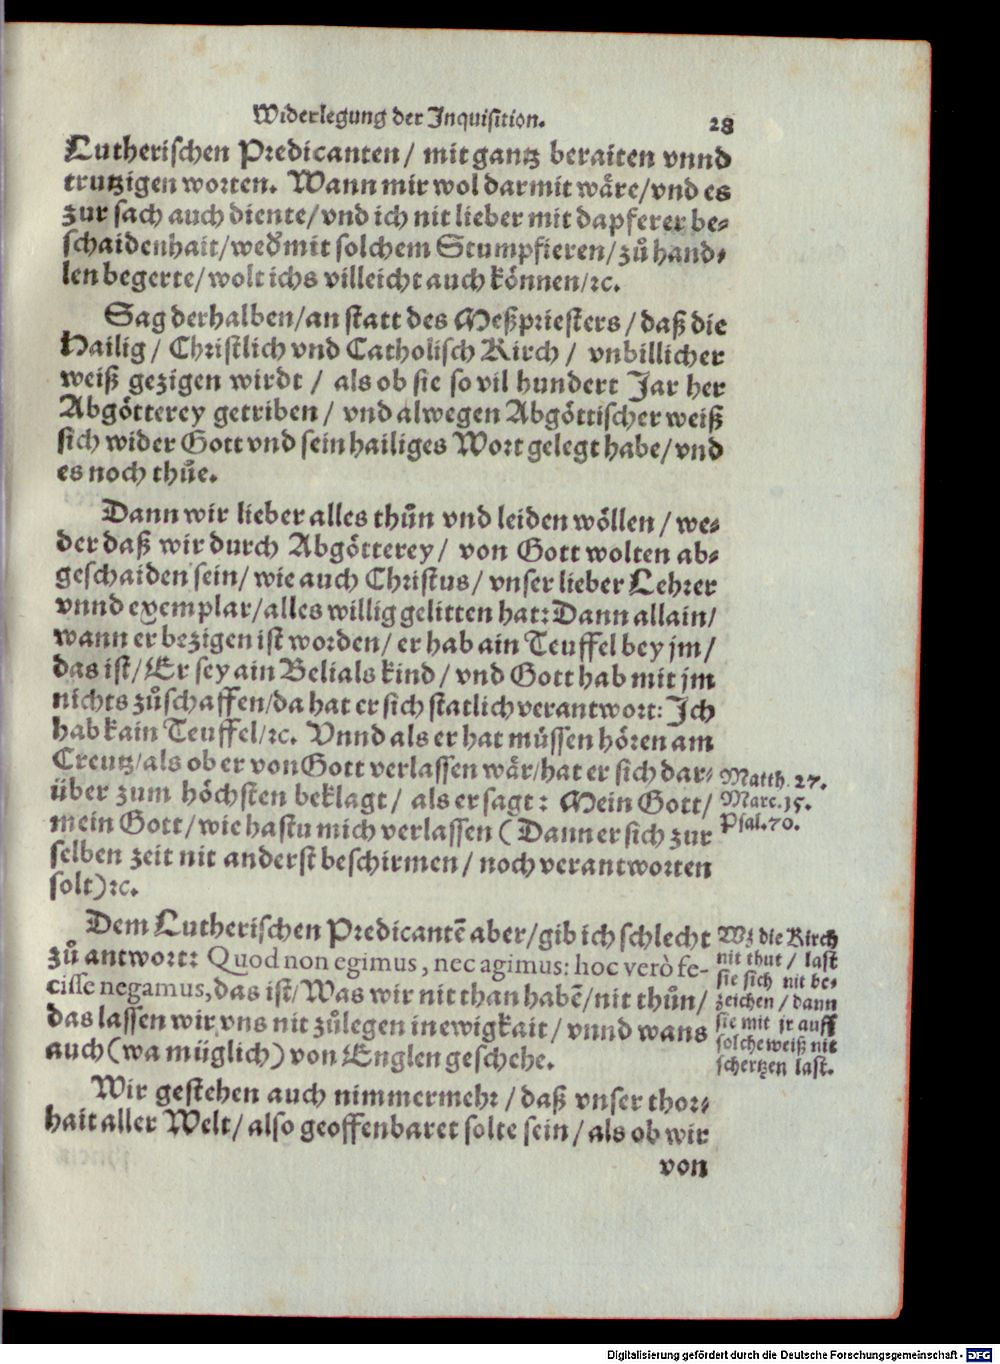 Widerlegung der Inquisition. 28
Lutherischen Predicanten / mit gantz beraiten vnnd
trutzigen worten. Wann mir wol darmit wäre/vnd es
zur sach auch diente/vnd ich nit lieber mit dapferer be-
schaidenhait/wed̃ mit solchem Stumpfieren/zů hand-
len begerte/wolt ichs villeicht auch können/ꝛc.
Sag derhalben/an statt des Meßpriesters/daß die
Hailig/ Christlich vnd Catholisch Kirch / vnbillicher
weiß gezigen wirdt / als ob sie so vil hundert Jar her
Abgötterey getriben/ vnd alwegen Abgöttischer weiß
sich wider Gott vnd sein hailiges Wort gelegt habe/vnd
es noch thůe.
Dann wir lieber alles thůn vnd leiden wöllen/we-
der daß wir durch Abgötterey/ von Gott wolten ab-
geschaiden sein/wie auch Christus/vnser lieber Lehrer
vnnd exemplar/alles willig gelitten hat: Dann allain/
wann er bezigen ist worden/er hab ain Teuffel bey jm/
das ist/Er sey ain Belials kind/vnd Gott hab mit jm
nichts zůschaffen/da hat er sich statlich verantwort: Ich
hab kain Teuffel/ꝛc. Vnnd als er hat müssen hören am
Creutz/als ob er von Gott verlassen wär/hat er sich dar-
über zum höchsten beklagt/ als er sagt: Mein Gott/
mein Gott/wie hastu mich verlassen (Dann er sich zur
selben zeit nit anderst beschirmen/noch verantworten
solt)ꝛc.
Matth. 27.
Marc. 15.
Psal. 70.
Dem Lutherischen Predicantē aber/gib ich schlecht
zů antwort: Quod non egimus, nec agimus: hoc verò fe-
cisse negamus, das ist/Was wir nit than habē/nit thůn/
das lassen wir vns nit zůlegen in ewigkait/vnnd wans
auch (wa müglich) von Englen geschehe.
Wz die Kirch
nit thut / last
sie sich nit be-
zeichen / dann
sie mit jr auff
solche weiß nit
schertzen last.
Wir gestehen auch nimmermehr/daß vnser thor-
hait aller Welt/also geoffenbaret solte sein/als ob wir
von
Digitalisierung gefördert durch die Deutsche Forschungsgemeinschaft - DFG